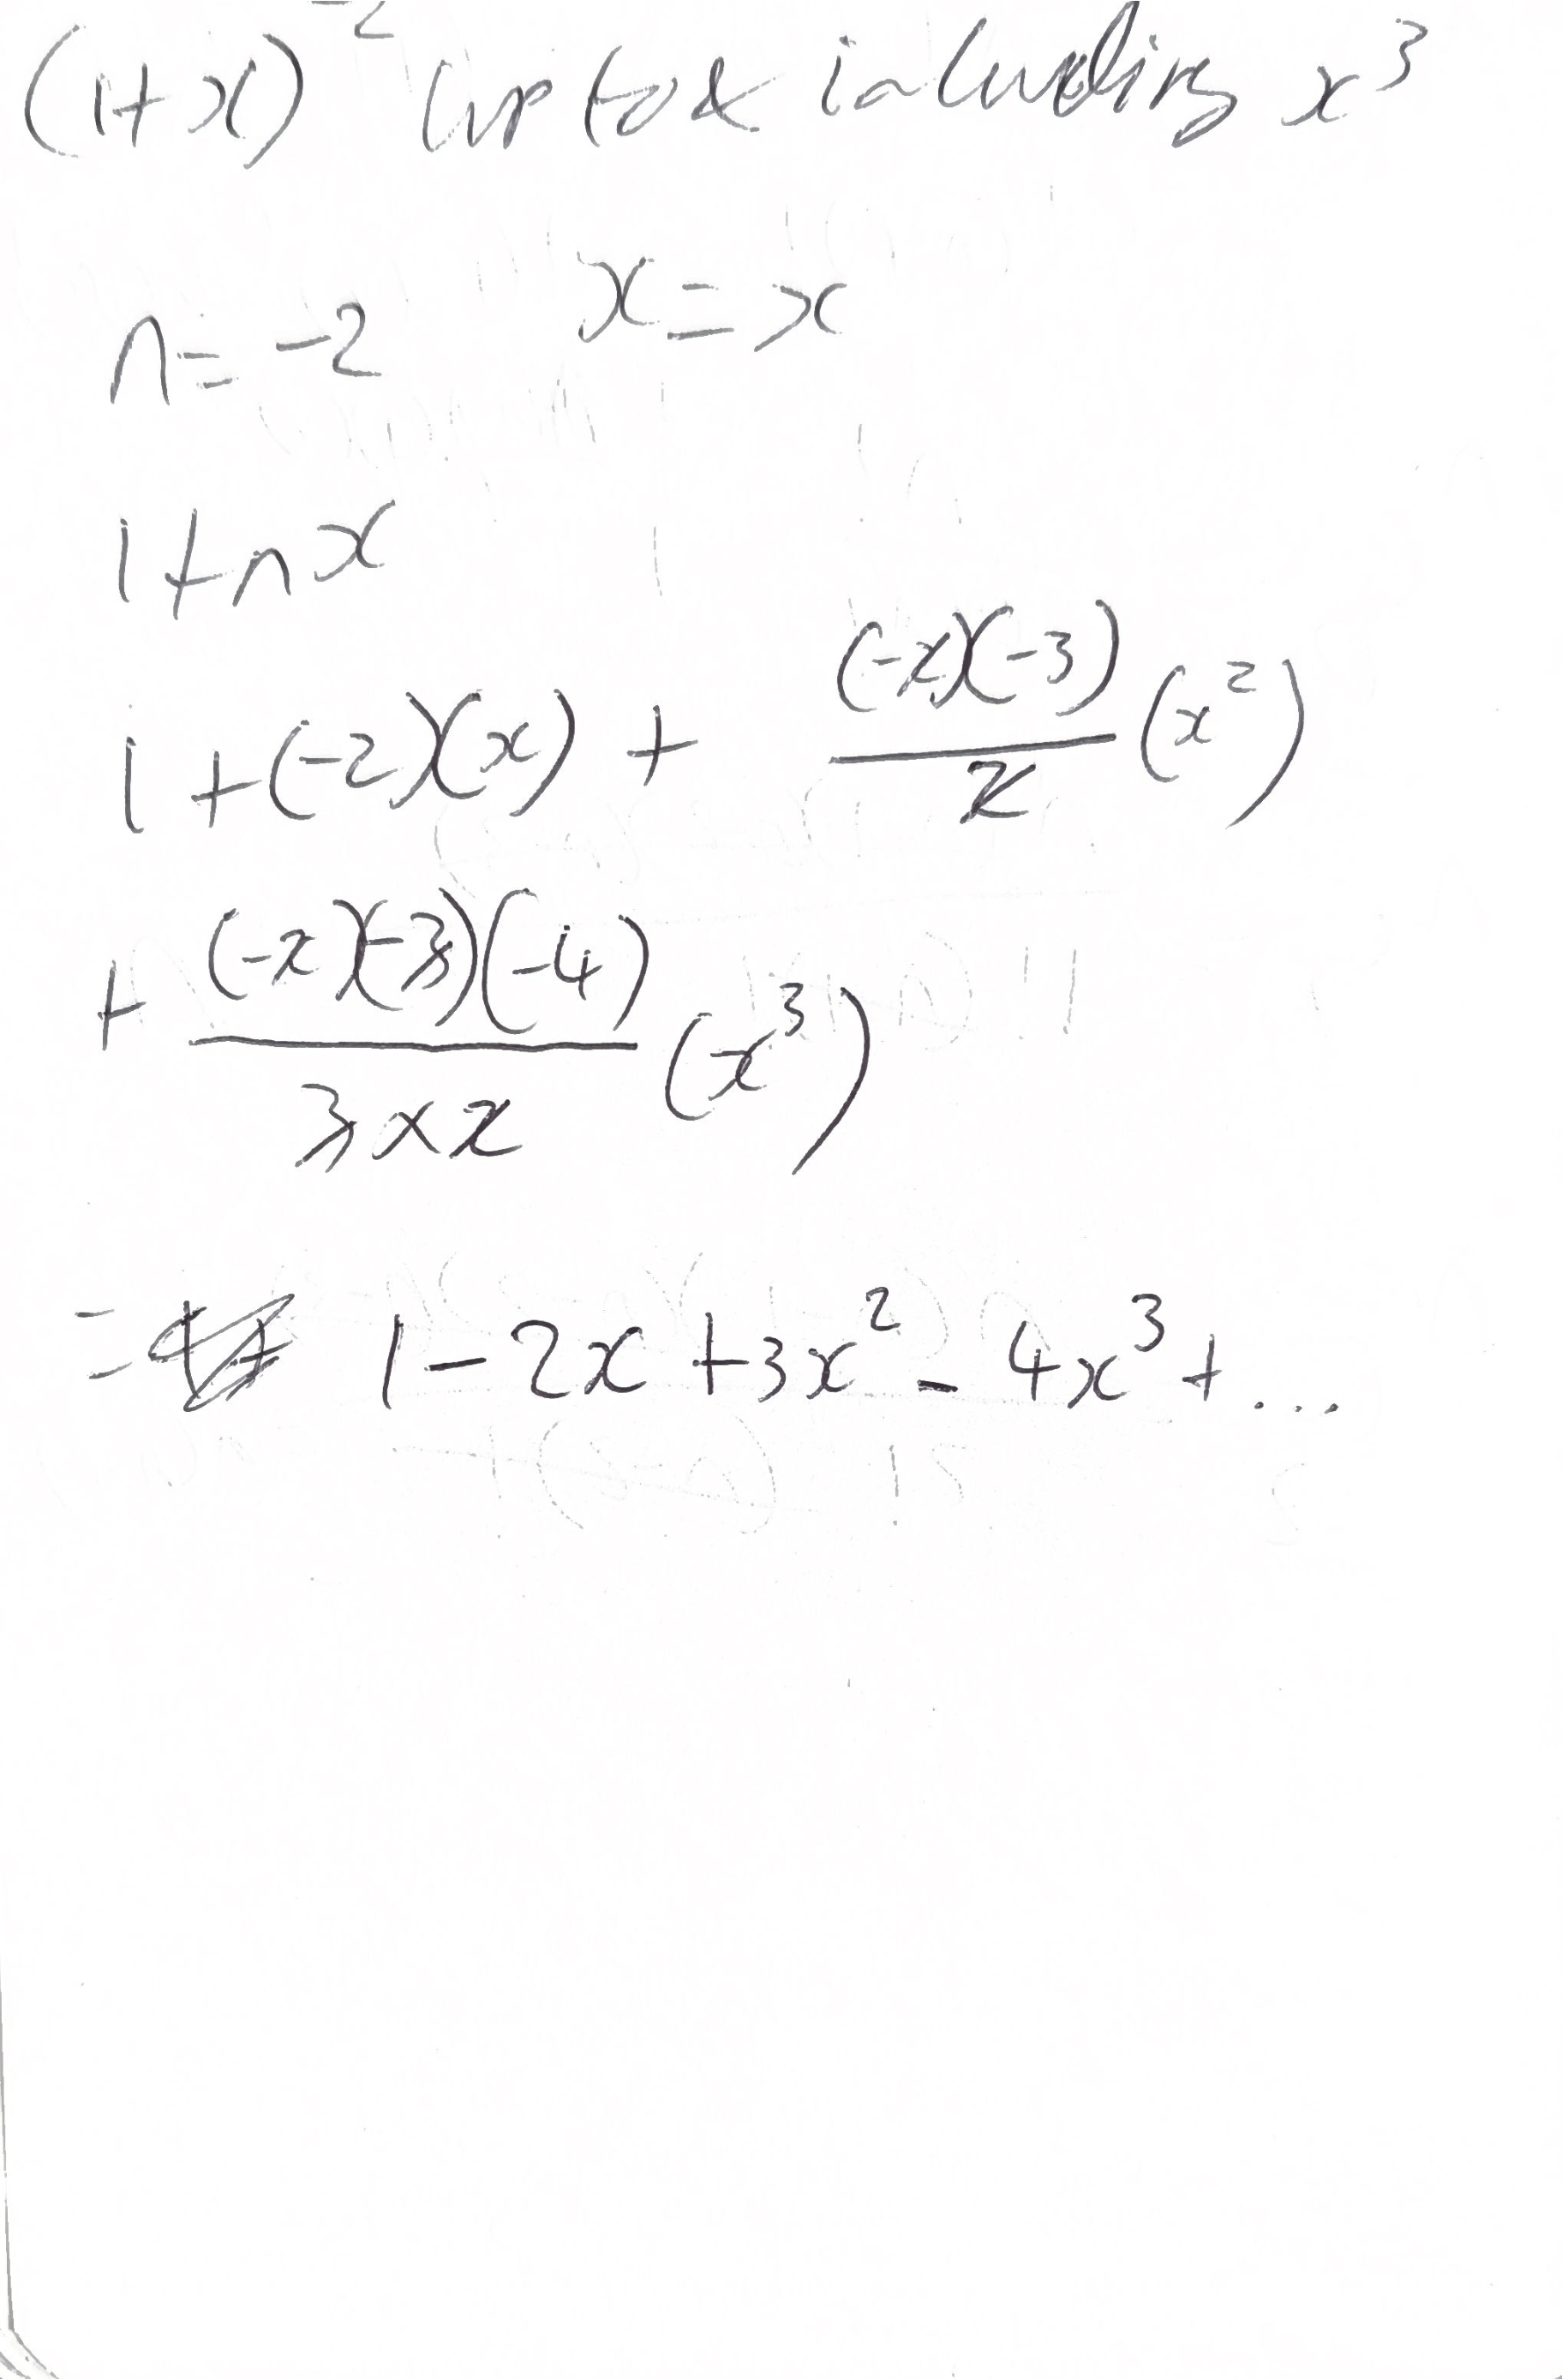 (1+x)⁻² up to & including x³
n = -2 x = x
1+nx
1 + (-2)(x) + (-2)(-3)/2 (x²)
+ (-2)(-3)(-4)/3×2 (x³)
= 1 - 2x + 3x² - 4x³ + ....